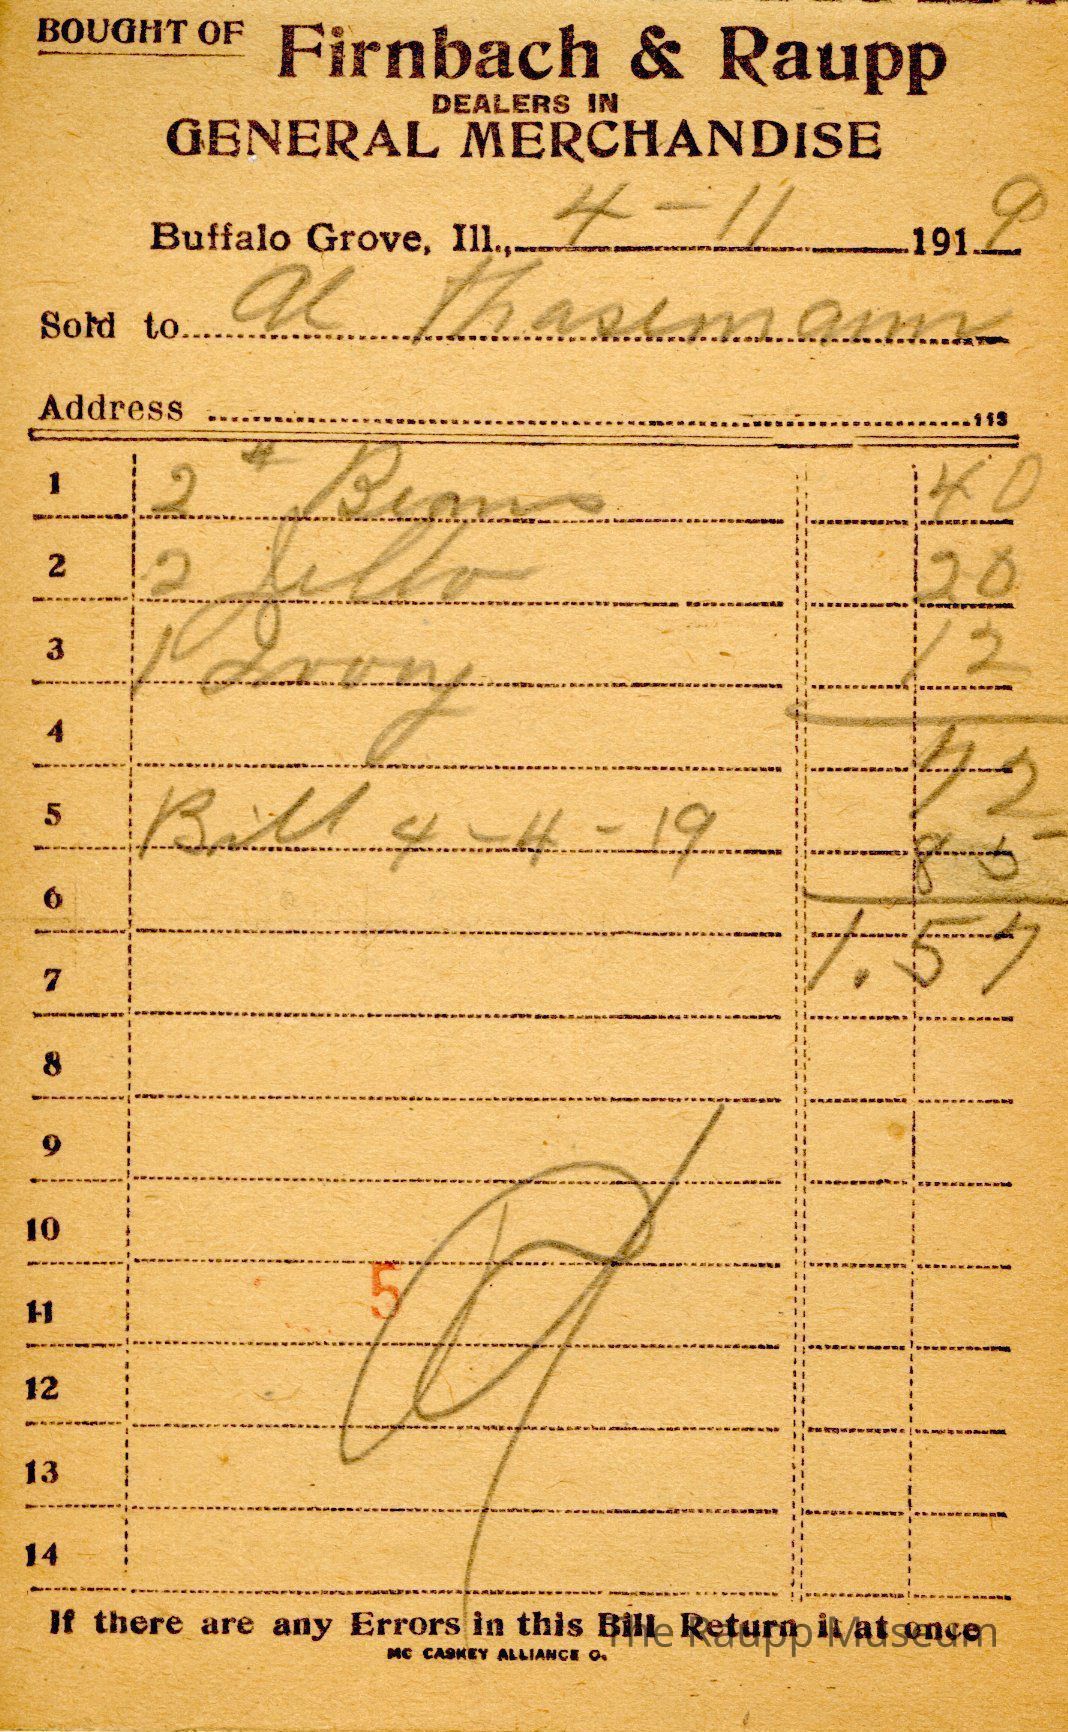 BOUGHT OF Firnbach & Raupp
DEALERS IN
GENERAL MERCHANDISE
Buffalo Grove, Ill., 4-11 1919
Sold to Al Thasemann
Address 113
1 2 # Beans 40
2 2 Jello 20
3 1 Ivory 12
4 72
5 Bill 4-4-19 85
6
7 1.57
8
9
10
5
11
12
13
14
If there are any Errors in this Bill Return it at once
The Raupp Museum
MC CASKEY ALLIANCE O.